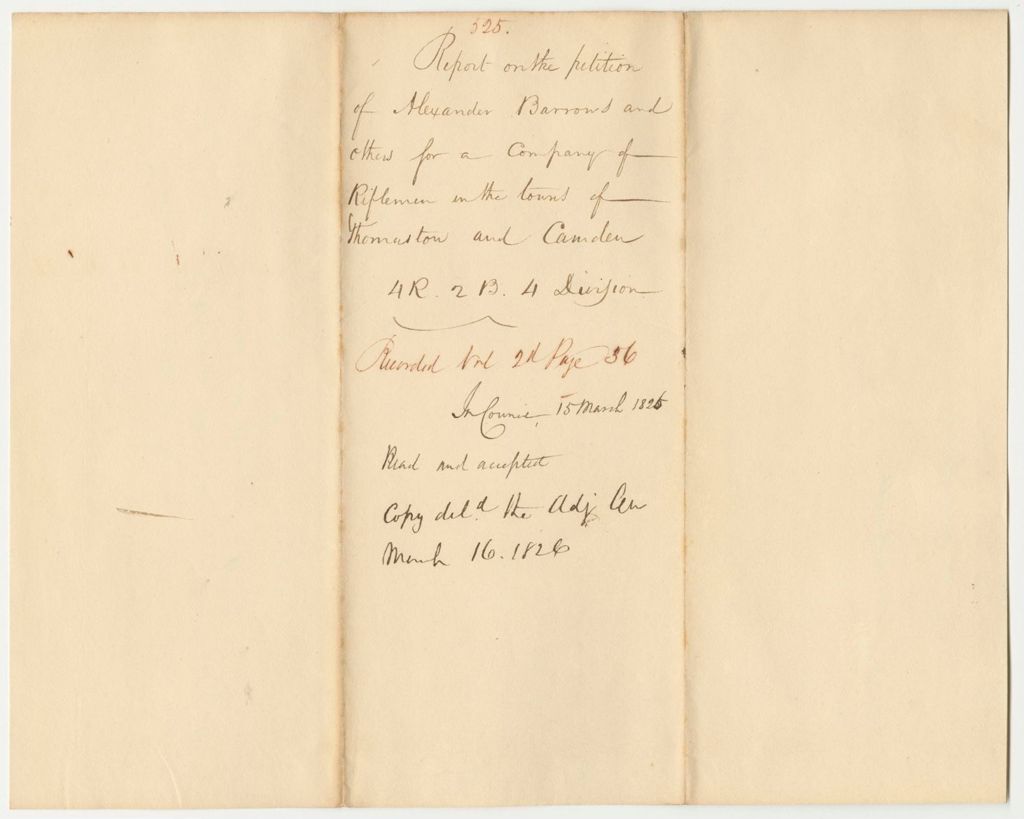 525.
Report on the petition
of Alexander Barrows and
others for a Company of
Riflemen in the towns of
Thomaston and Camden
4 R. 2 B. 4 Division
Recorded Vol 2d Page 36
In Council, 15 March 1826
Read and accepted
Copy deld the Adj Gen
March 16. 1826